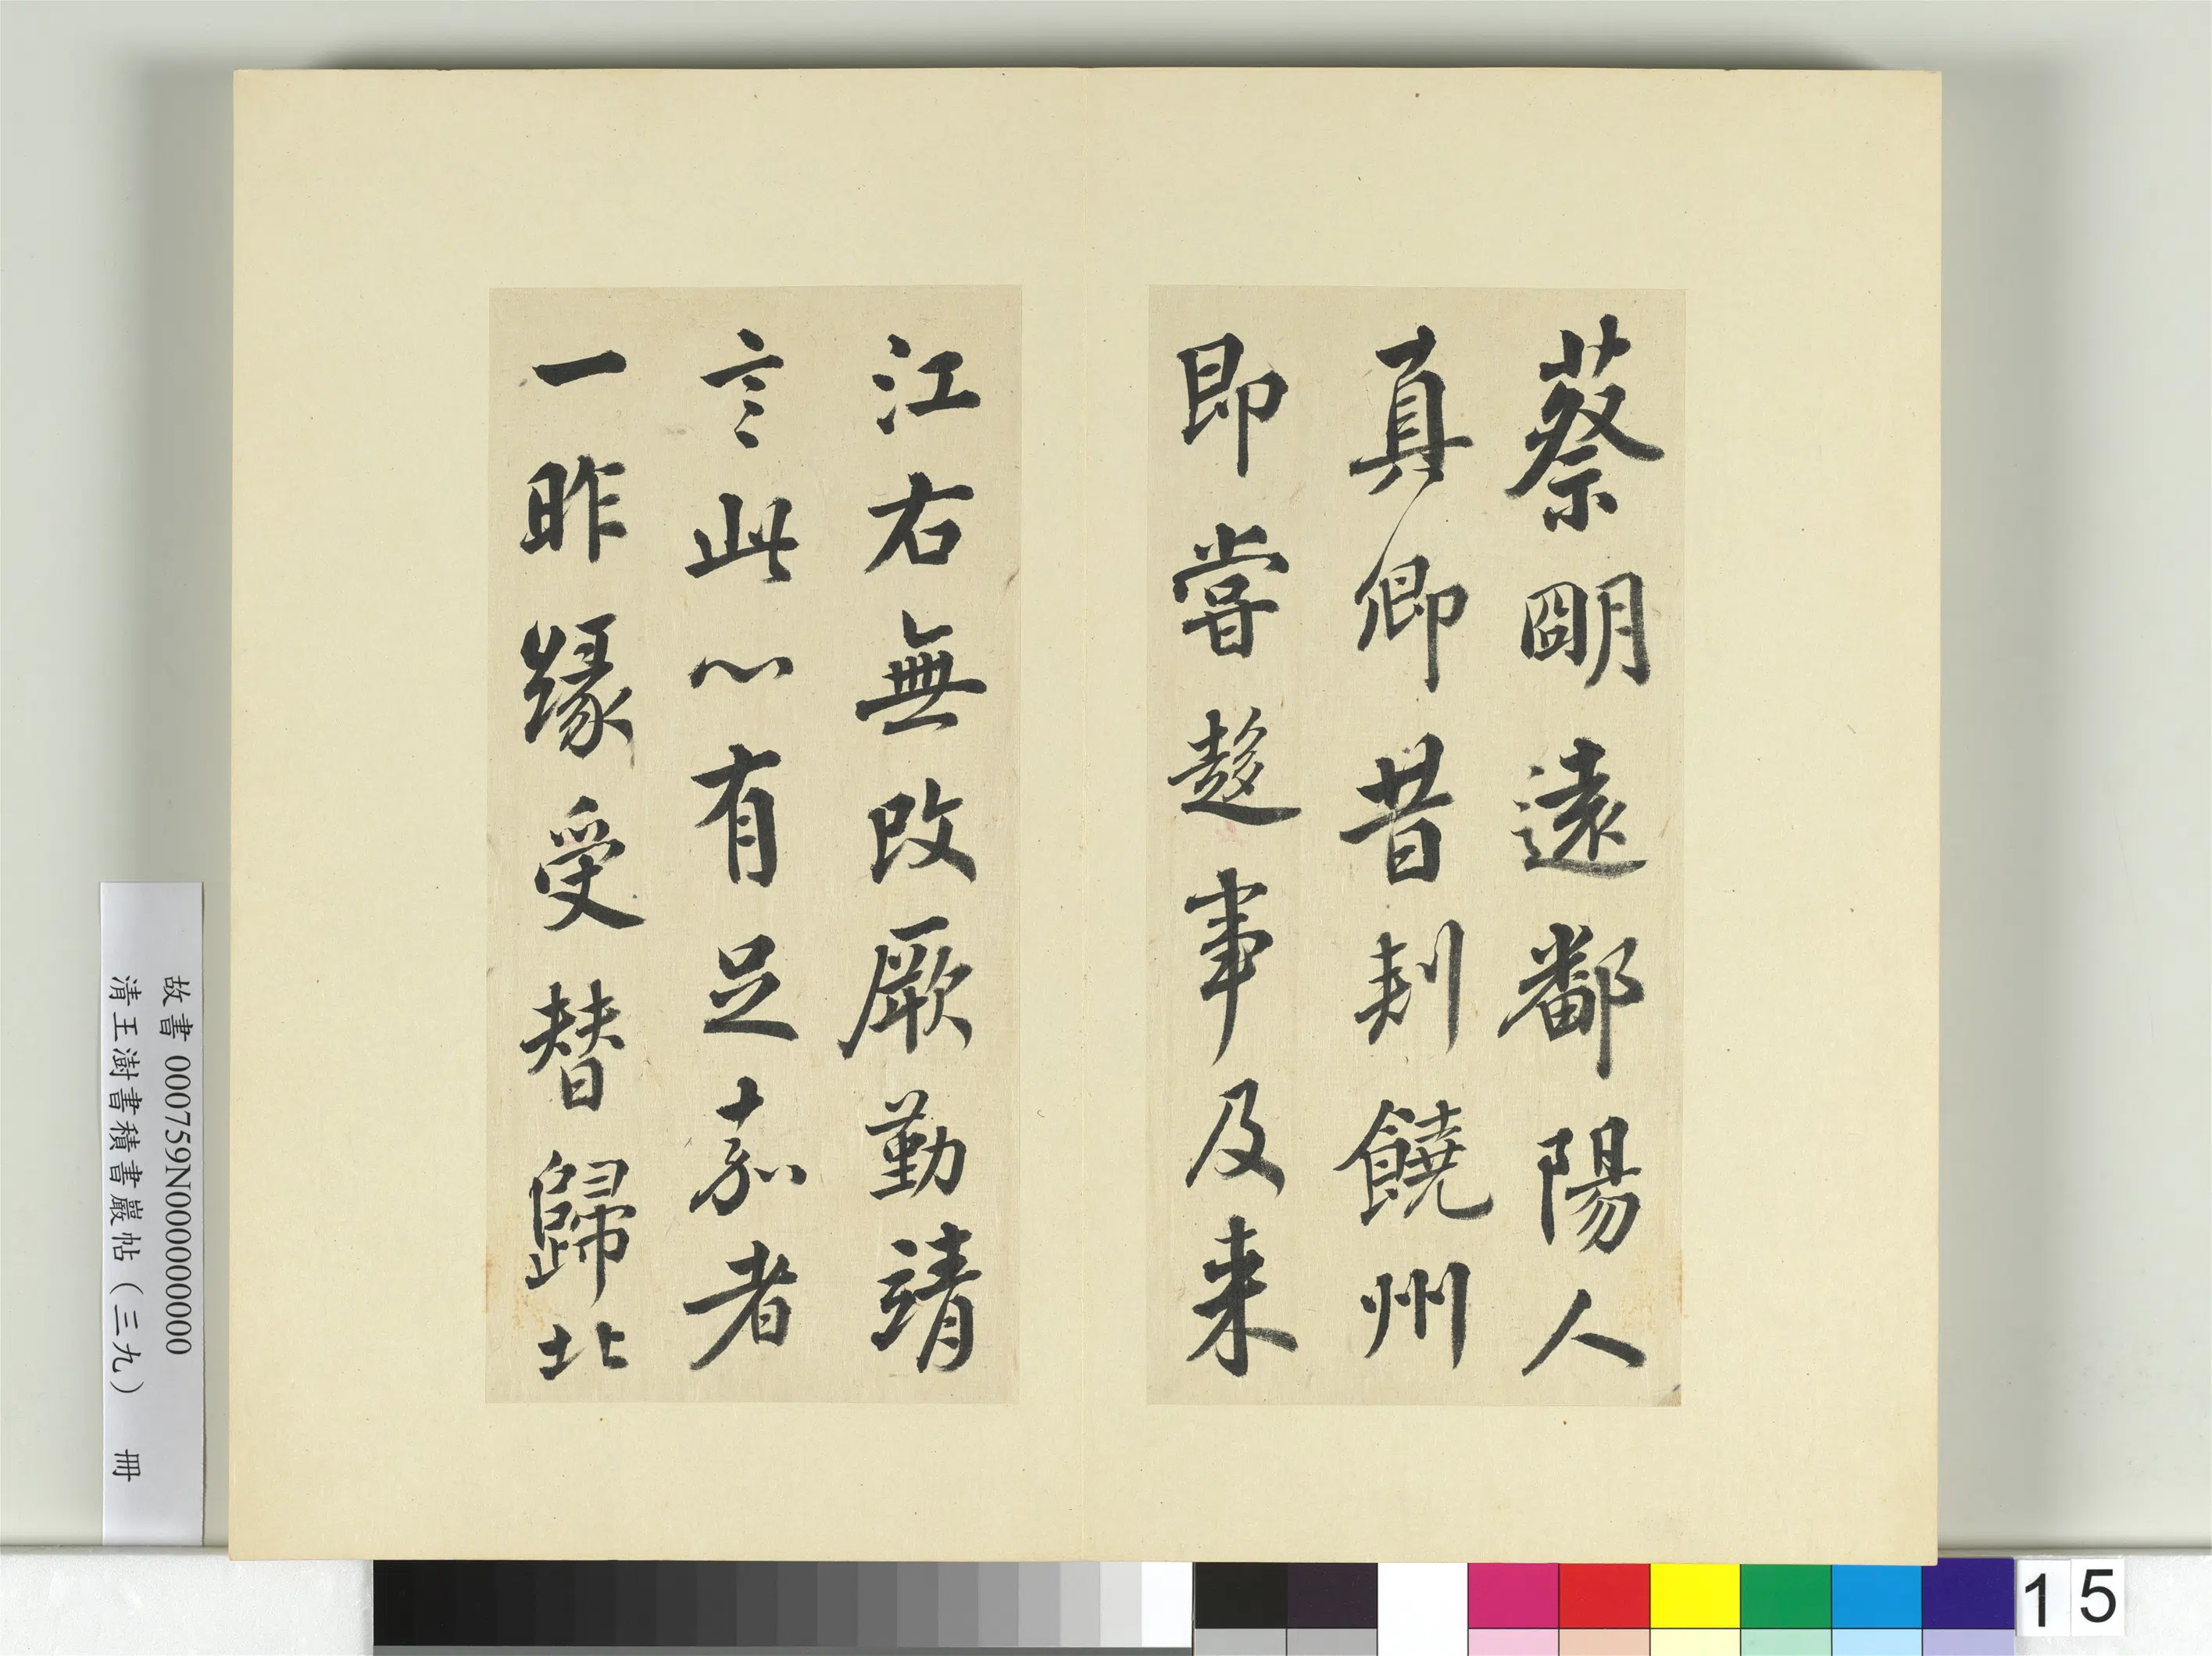 蔡明遠鄱陽人
真卿昔刾饒州
即嘗趍事及来
江右無改厥勤靖
言此心有足嘉者
一昨緣受替歸北
故書 000759N000000000
清王澍書積書巖帖（三九） 冊
15